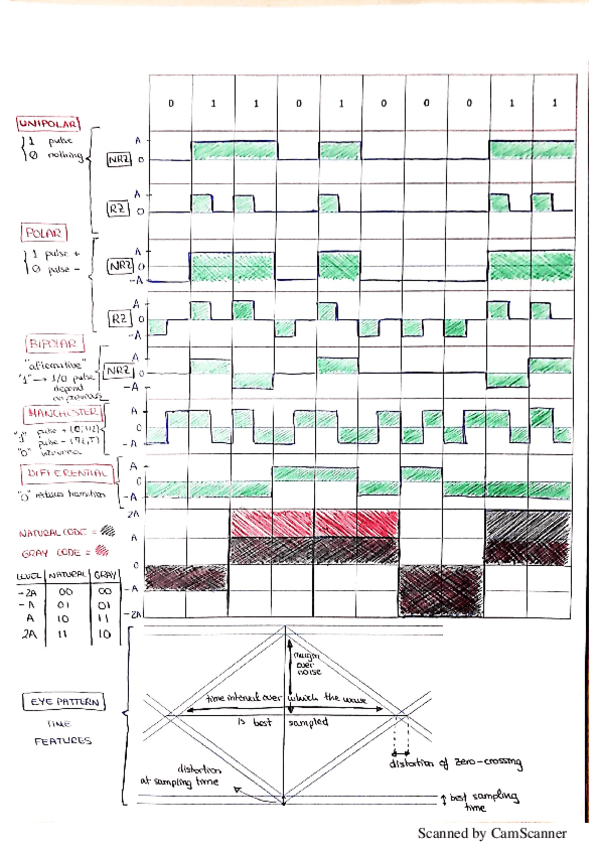 0 1 1 0 1 0 0 0 1 1
UNIPOLAR
1 pulse
0 nothing
NRZ
A
0
RZ
A
0
POLAR
1 pulse +
0 pulse -
NRZ
A
0
-A
RZ
A
0
-A
BIPOLAR
"alternative"
"1" → 1/0 pulse
depend
on previous
NRZ
A
0
-A
MANCHESTER
"1" pulse + (0, T/2)
pulse - (T/2, T)
"0"
A
0
-A
DIFFERENTIAL
"0" induces transition
A
-A
NATURAL CODE =
GRAY CODE =
2A
A
0
-A
-2A
LEVEL NATURAL GRAY
-2A 00 00
-A 01 01
A 10 11
2A 11 10
EYE PATTERN
TIME
FEATURES
margin
over
noise
time interval over which the wave
is best sampled
distortion of zero-crossing
distortion
at sampling time
best sampling
time
Scanned by CamScanner